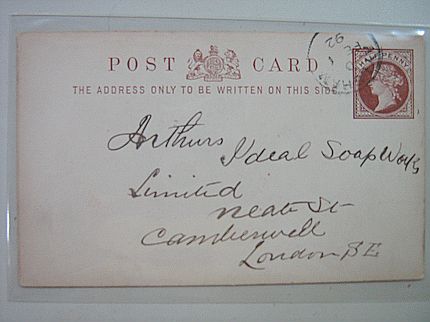 POST CARD
THE ADDRESS ONLY TO BE WRITTEN ON THIS SIDE
HALFPENNY
92
Arthurs Ideal Soap Works
Limited
Neate St
Camberwell
London SE